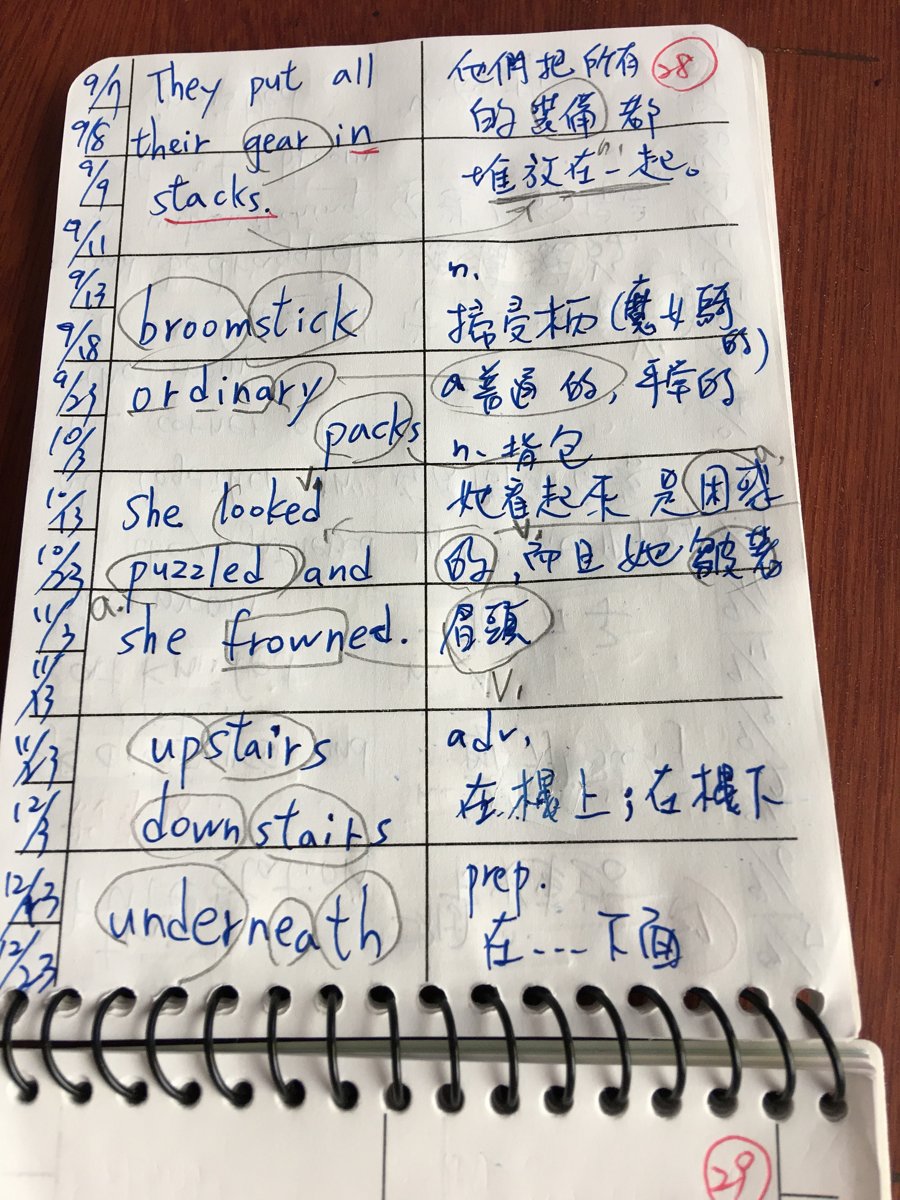 9/7
9/8
9/9
9/11
9/13
9/18
9/23
10/3
10/13
10/23
11/3
11/13
11/23
12/3
12/13
12/23
They put all
their gear in
stacks.
他們把所有
的裝備都
n.
堆放在一起。
28
broomstick
n.
掃帚柄(魔女騎
的)
ordinary
a 普通的,平常的
packs
n. 背包
She looked
v.
puzzled and
a.
she frowned.
她看起來是困惑
a.
的,而且她皺著
v.
眉頭
V.
upstairs
downstairs
adv.
在樓上;在樓下
underneath
prep.
在----下面
29